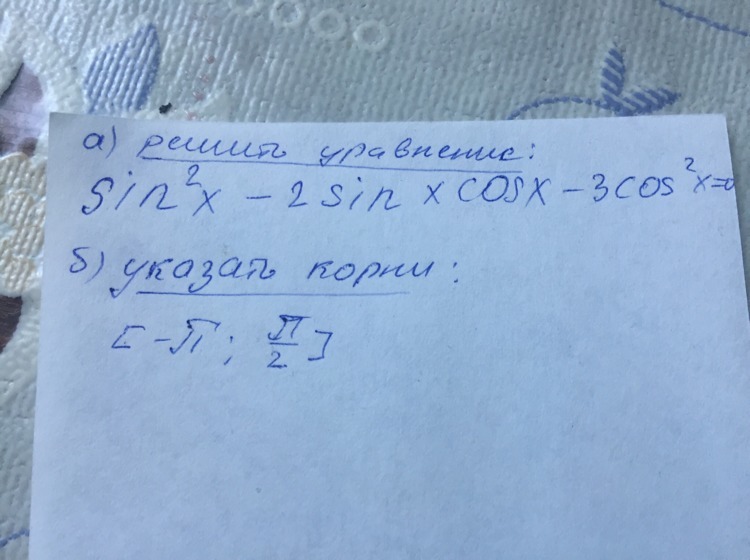 а) решить уравнение:
sin²x - 2 sin x cosx - 3cos²x=0
б) указать корни:
[-π; π/2]